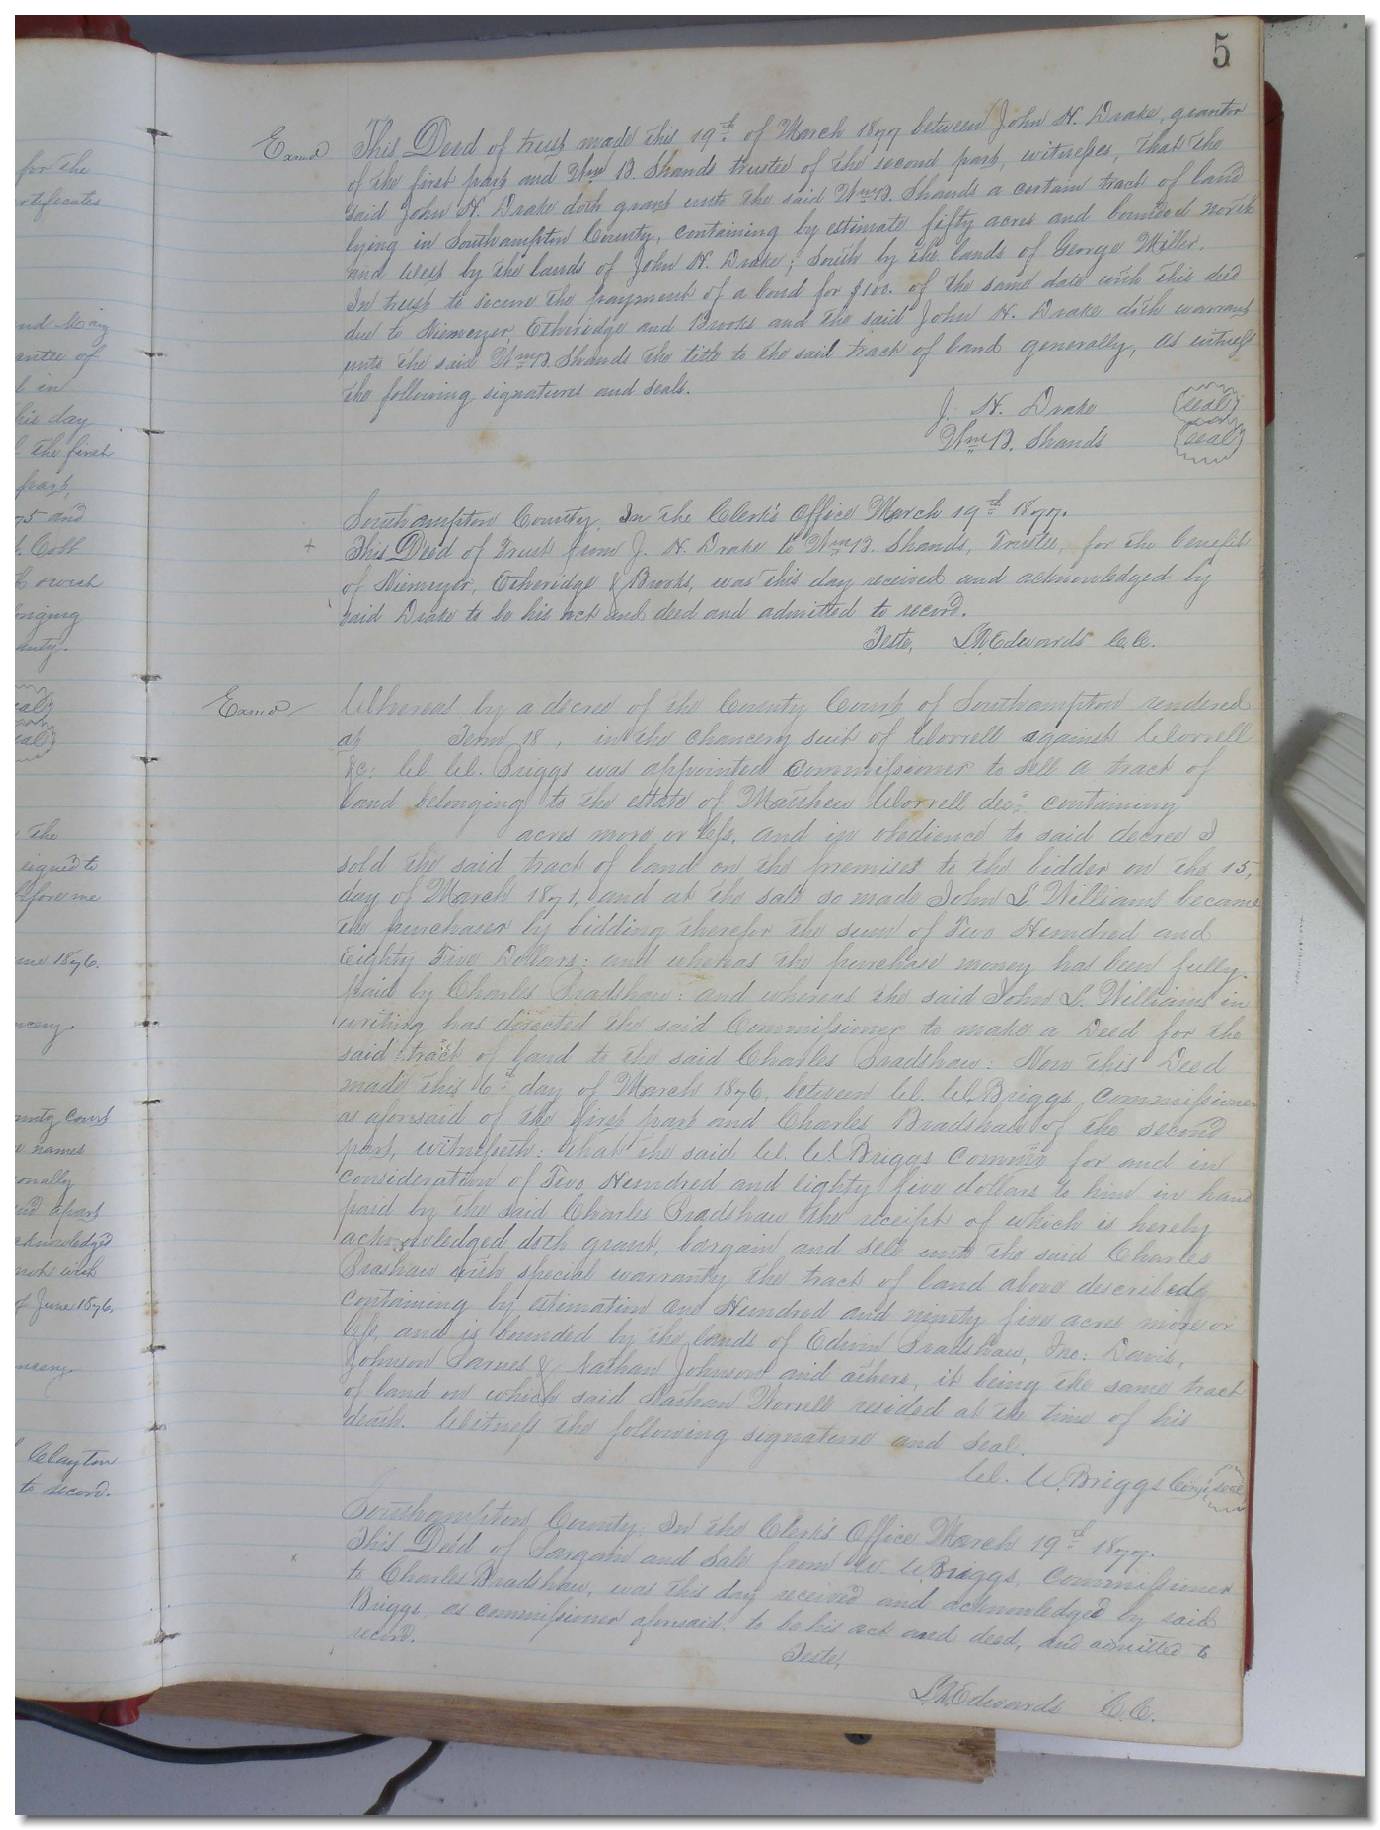 for the
rtificates
nd
antee of
d in
his day
the first
part,
75 and
Cobb
onging
unty.
seal
seal
the
signed to
before me
une 1876.
ncery.
unty court
names
onally
apart
cknowledged
of June 1876.
ncery.
Clayton
to record.
5
Exmd This Deed of trust made this 19th of March 1877 between John N. Drake, grantor
of the first part and Wm B. Shands trustee of the second part, witnesses, that the
said John N. Drake doth grant unto the said Wm B. Shands a certain tract of land
lying in Southampton County, containing by estimate fifty acres and bounded north
and west by the lands of John N. Drake; South by the lands of George Miller.
In trust to secure the payment of a bond for $100. of the same date with this deed
due to Niemeyer, Etheridge and Brooks and the said John N. Drake doth warrant
unto the said Wm B. Shands the title to the said tract of land generally, As witness
the following signatures and seals.
J. N. Drake (seal)
Wm B. Shands (seal)
Southampton County. In the Clerk's Office March 19th 1877.
+ This Deed of Trust from J. N. Drake to Wm B. Shands, Trustee, for the benefit
of Niemeyer, Etheridge & Brooks, was this day received and acknowledged by
said Drake to be his act and deed and admitted to record.
Teste, L R Edwards C.C.
Exmd Whereas by a decree of the County Court of Southampton rendered
at Term 18 , in the chancery suit of Worrell against Worrell
&c: W. W. Briggs was appointed Commissioner to sell a tract of
land belonging to the estate of Matthew Worrell dec: containing
acres more or less, and in obedience to said decree I
sold the said tract of land on the premises to the bidder on the 15,
day of March 1871, and at the sale so made John L Williams became
the purchaser by bidding therefor the sum of Two Hundred and
Eighty Five Dollars: and whereas the purchase money has been fully
paid by Charles Bradshaw: and whereas the said John L. Williams in
writing has directed the said Commissioner to make a Deed for the
said tract of land to the said Charles Bradshaw: Now This Deed
made this 6th day of March 1876, between W. W. Briggs Commissioner
as aforesaid of the first part and Charles Bradshaw of the second
part, witnesseth: that the said W. W. Briggs Commr for and in
consideration of Two Hundred and eighty five dollars to him in hand
paid by the said Charles Bradshaw the receipt of which is hereby
acknowledged doth grant, bargain and sell unto the said Charles
Brashaw with special warranty the tract of land above described,
containing by estimation One Hundred and ninety five acres more or
less, and is bounded by the lands of Edwin Bradshaw, Jno: Davis,
Johnson Barnes & Nathan Johnson and others, it being the same tract
of land on which said Nathan Worrell resided at the time of his
death. Witness the following signature and seal.
W. W. Briggs Comr seal
Southampton County, In the Clerk's Office March 19th 1877.
x This Deed of Bargain and Sale from W. W Briggs, Commissioner
to Charles Bradshaw, was this day received and acknowledged by said
Briggs, as commissioner aforesaid, to be his act and deed, and admitted to
record.
Teste,
L R Edwards C.C.